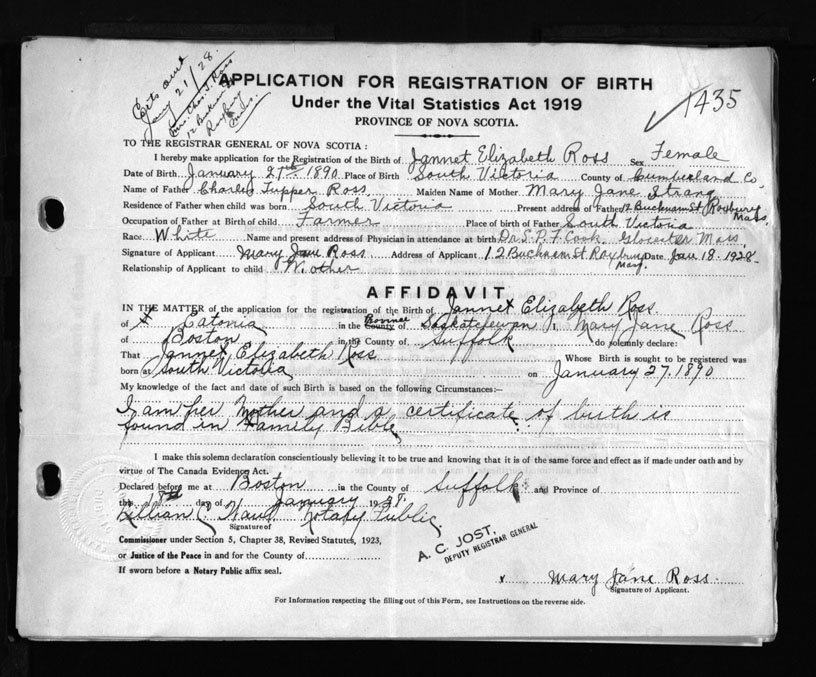 Jany 21/28.
Mrs. Chas. T. Ross
12 Bucknam St
Roxbury
APPLICATION FOR REGISTRATION OF BIRTH
Under the Vital Statistics Act 1919
PROVINCE OF NOVA SCOTIA.
1435
TO THE REGISTRAR GENERAL OF NOVA SCOTIA :
I hereby make application for the Registration of the Birth of Jannet Elizabeth Ross Sex Female
Date of Birth January 27th 1890 Place of Birth South Victoria County of Cumberland Co,
Name of Father Charles Tupper Ross. Maiden Name of Mother Mary Jane Strang
Residence of Father when child was born South Victoria Present address of Father 12 Bucknam St Roxbury Mass.
Occupation of Father at Birth of child Farmer Place of birth of Father South Victoria
Race White Name and present address of Physician in attendance at birth Dr. S. P. F Cook, Glocester Mass.
Signature of Applicant Mary Jane Ross Address of Applicant 12 Bucknem St Roxbury Date Jan 18. 1928
Mass.
Relationship of Applicant to child Mother
AFFIDAVIT
IN THE MATTER of the application for the registration of the Birth of Jannet Elizabeth Ross
of x Eatonia in the County of Saskatchewan I, Mary Jane Ross
of Boston in the County of Suffolk do solemnly declare:
That Jannet Elizabeth Ross Whose Birth is sought to be registered was
born at South Victoria on January 27. 1890
My knowledge of the fact and date of such Birth is based on the following Circumstances:—
I am her Mother and a certificate of birth is
found in Family Bible
I make this solemn declaration conscientiously believing it to be true and knowing that it is of the same force and effect as if made under oath and by
virtue of The Canada Evidence Act.
Declared before me at Boston in the County of Suffolk and Province of
this 18th day of January 1928.
Lillian C. Notary Public
Signature of
Commissioner under Section 5, Chapter 38, Revised Statutes, 1923,
or Justice of the Peace in and for the County of
If sworn before a Notary Public affix seal.
A. C. JOST,
DEPUTY REGISTRAR GENERAL
x Mary Jane Ross.
Signature of Applicant.
For Information respecting the filling out of this Form, see Instructions on the reverse side.